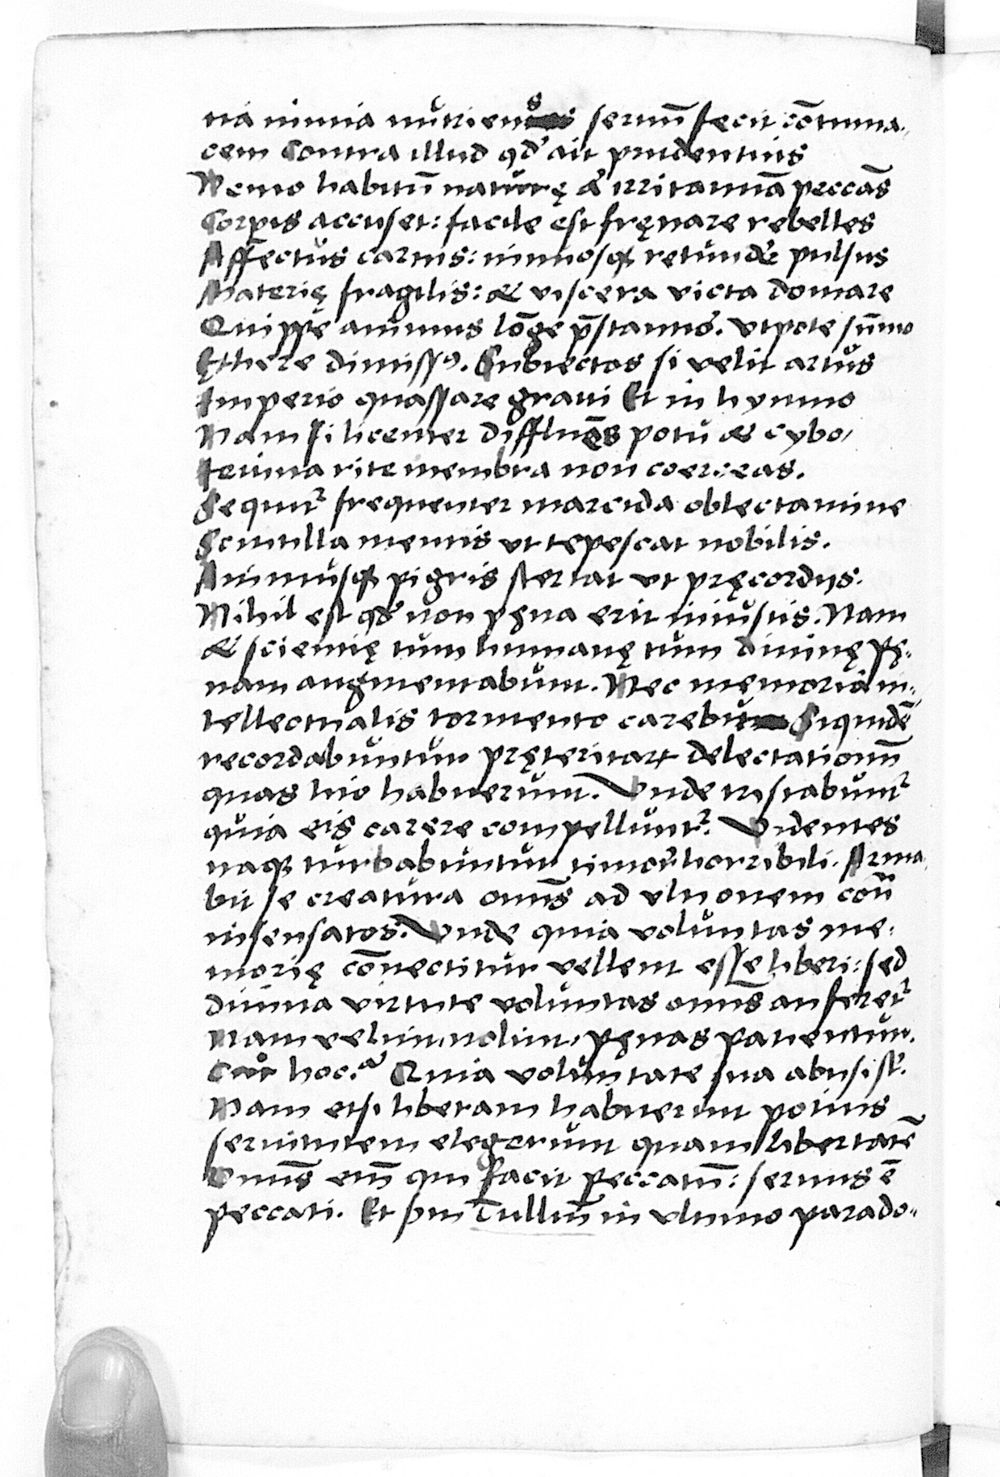 tia nimia nutriens seruũ fecit cõtuma-
cem Contra illud qđ ait prudentius
Nemo habitũ naturę & irritamĩa peccãs
Corpis accuset: facile est fręnare rebelles
Affectus carnis: nimiosq; retundẽ pulsus
Materię fragilis: & viscera victa domare
Quippe animus lõge p̃stantior. vtpote sũmo
Ęthere dimissꝰ. Subiectos si velit artus
Imperio quassare graui Et in hymno
Nam si licenter diffluẽs potu & cybo/
Ieiuna rite membra non coerceas.
Sequit᷑ frequenter marcida oblectamine
Scintilla mentis vt tepescat nobilis.
Animusq; pigris stertat vt pręcordijs.
Nihil est qđ non pęna erit iniustis. Nam
& scientię tum humanę tum diuinę pę-
nam augmentabunt. Nec memoria in-
tellectualis tormento carebit Siquidẽ
recordabuntur pręteritaꝝ delectationũ
quas hic habuerunt. Vnde tristabunt᷑
quia eis carere compellunt᷑. Videntes
naq; turbabuntur timore horribili. Arma
bit se creatura omĩs ad vltionem cõtra
insensatos. Vnde quia voluntas me-
morię cõnectitur vellent esse liberi: sed
diuina virtute voluntas omĩs auferet᷑
Nam velint, nolint, pęnas patientur.
Cur hoc? Quia voluntate sua abusi sũt.
Nam etsi liberam habuerunt potius
seruitutem elegerunt quam libertatẽ
Omĩs em̃ qui facit peccatũ: seruus ẽ
peccati. Et s̃m Tulliũ in vltimo parado-